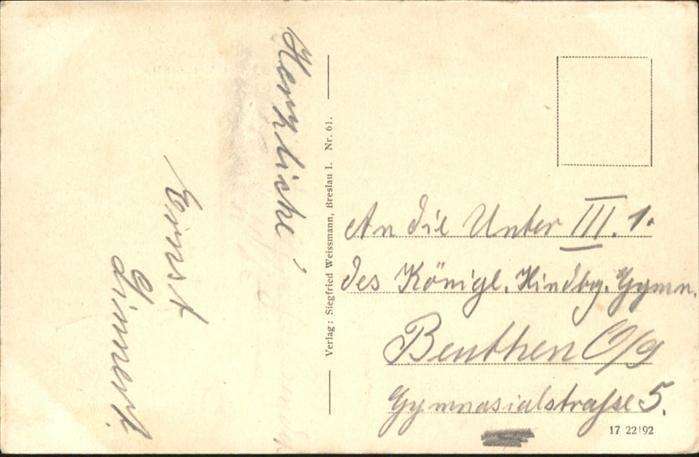 Herzliche
Ernst
Verlag: Siegfried Weissmann, Breslau I. Nr. 61.
An die Unter III. 1.
des Königl. Hindbg. Gymn.
Beuthen O/S
Gymnasialstraße 5.
17 22192